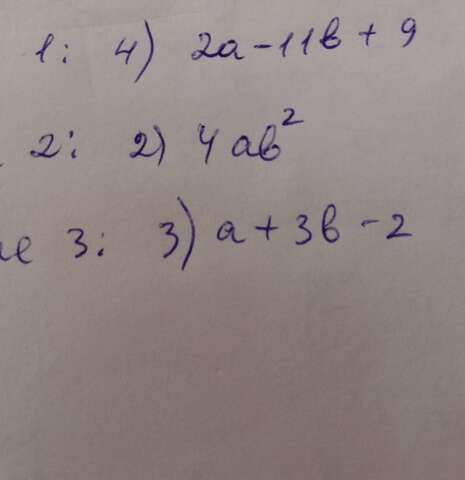 1: 4) 2a-11b+9
2: 2) 4ab²
ие 3: 3) a+3b-2